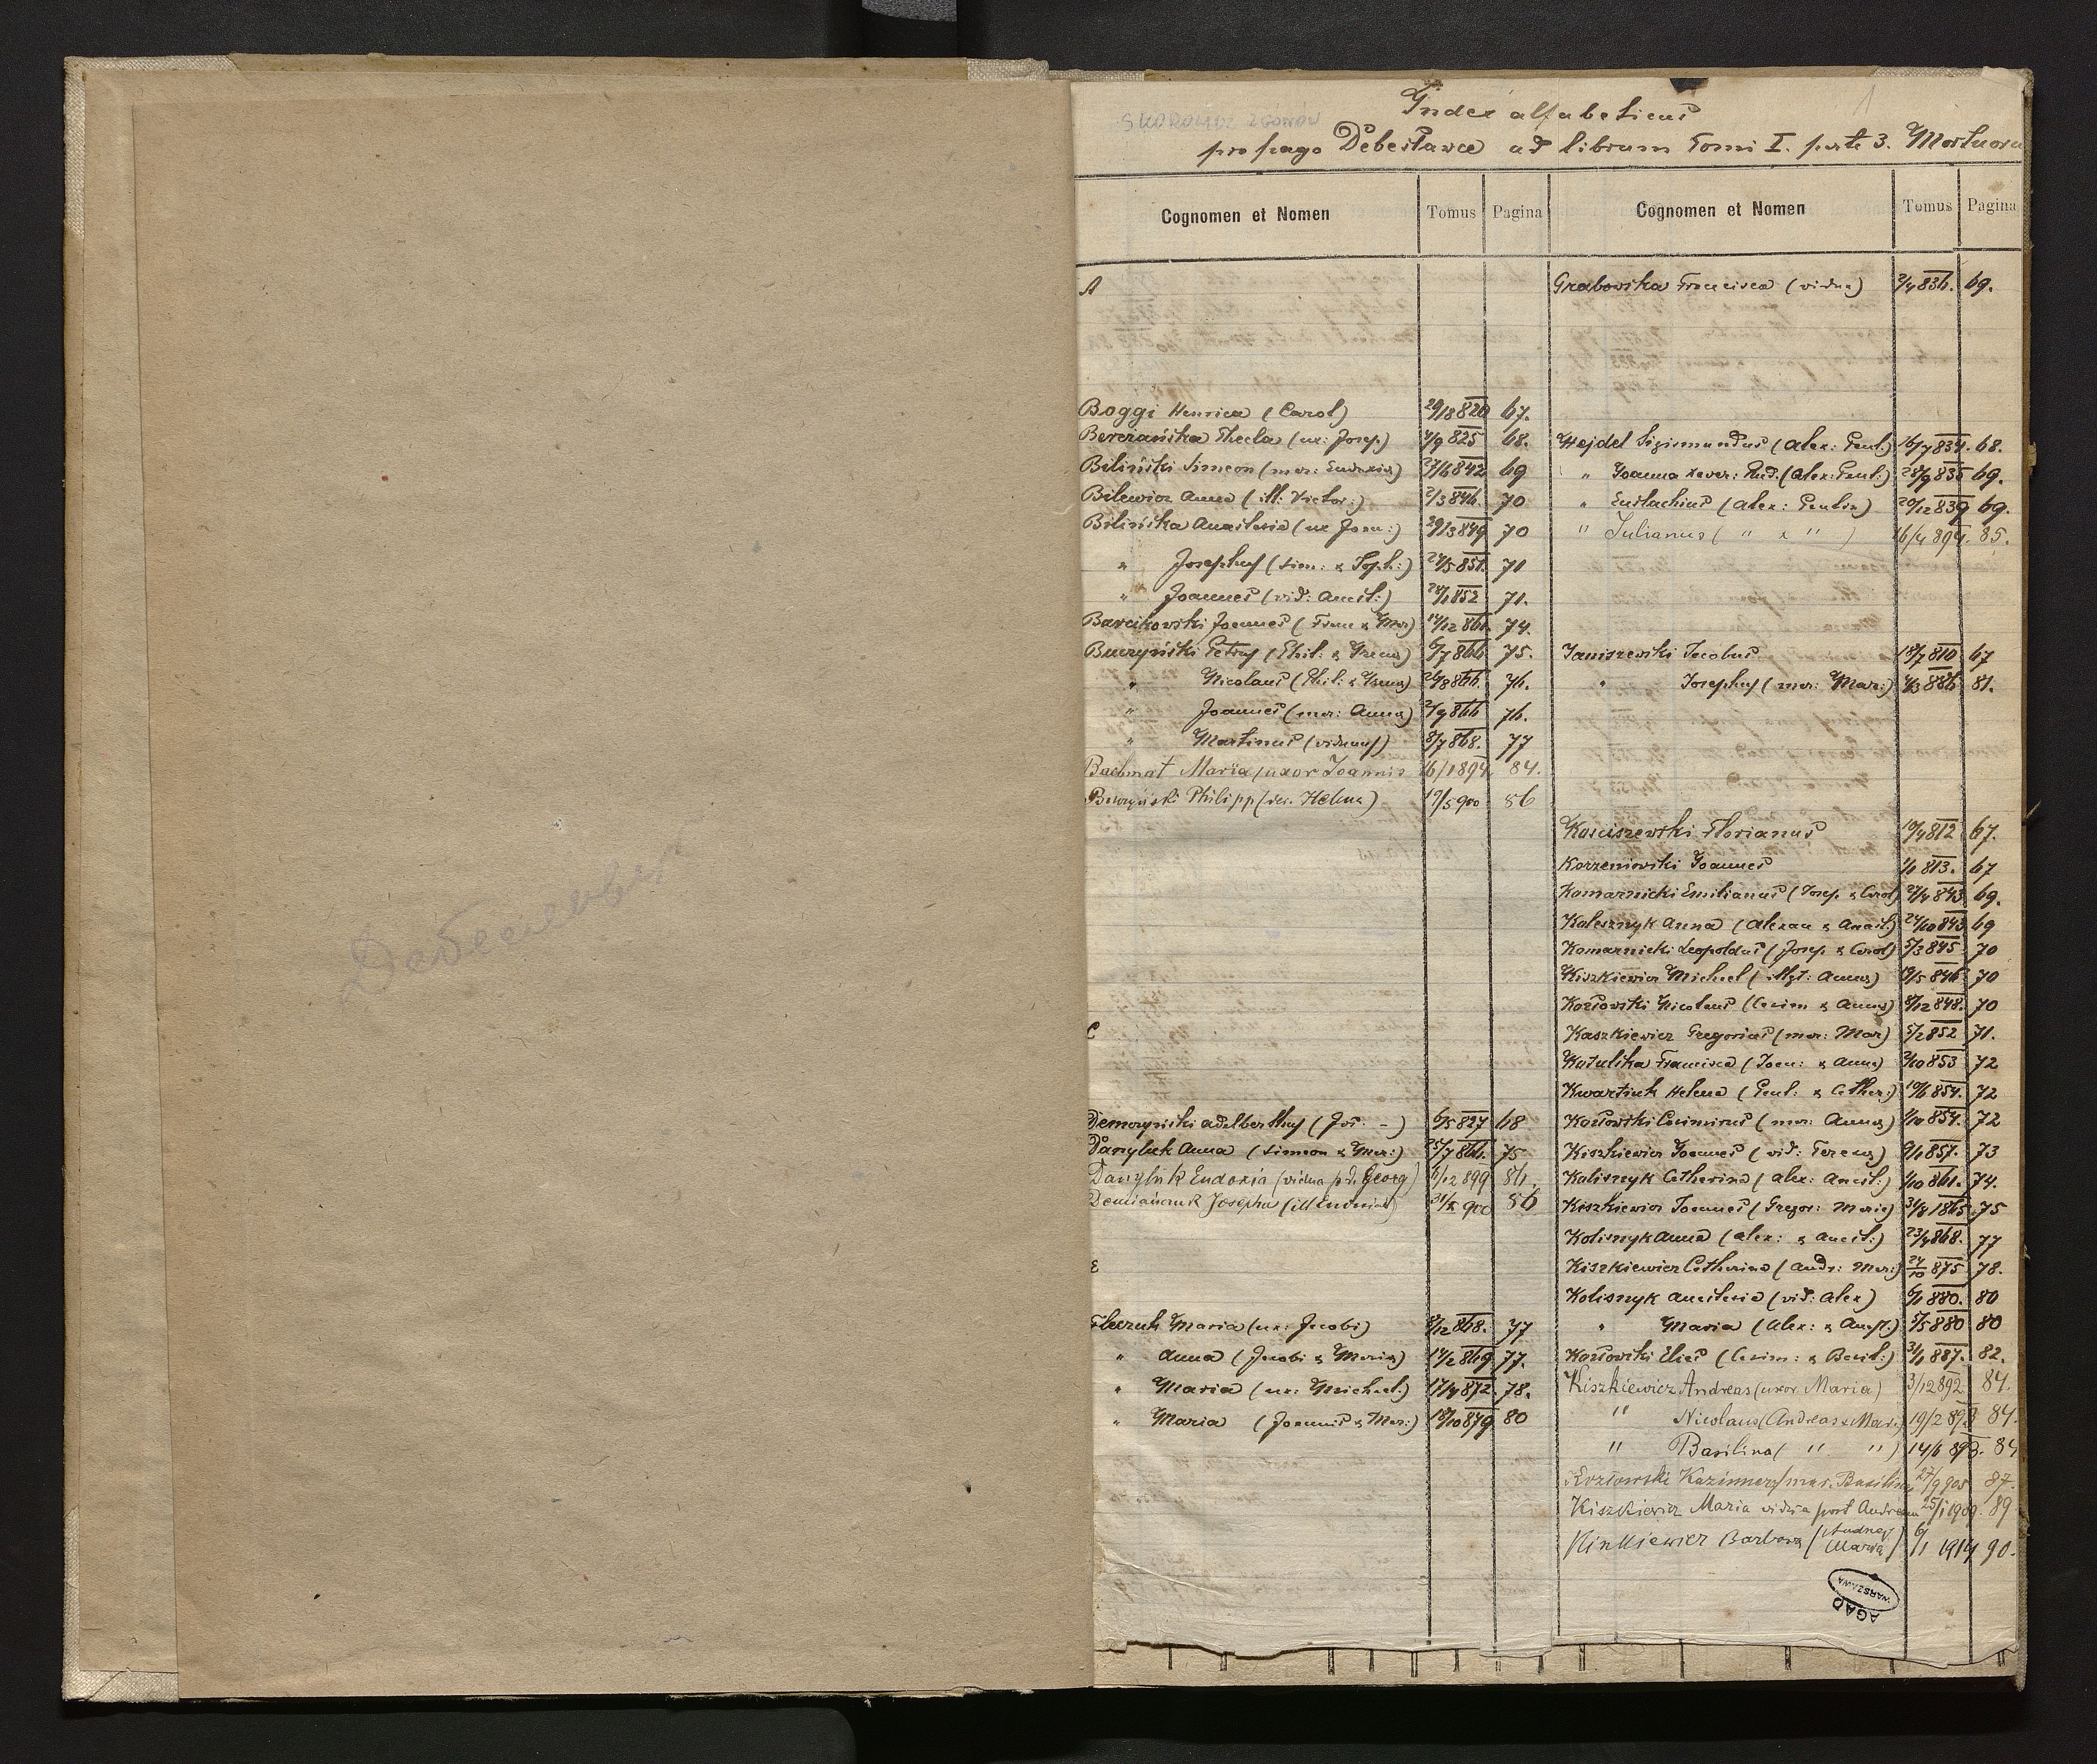 SKOROWIDZ ZGONÓW
1
Index alfabeticus
pro pago Debesławce ad librum Tomi I. parte 3. Mortuoru
Cognomen et Nomen Tomus Pagina
A
Boggi Henrica (Carol) 67.
Berezańska Thecla (ux: Josep.) 4/9 825 68.
Biliński Simeon (mar: Eudoxia) 27/6 842 69
Bilewicz Anna (ill: Victor:) 2/3 846. 70
Bilińska Anastasia (ux Joan:) 29/3 849 70
" Josephus (Sim: & Soph:) 24/5 851. 71
" Joannes (vid: Anast:) 852 71.
Barcikowski Joannes (Fran & Mar) 14/12 861. 74.
Buczyński Petrus (Phil: & Irena) 6/7 866 75.
" Nicolaus (Phil: & Irena) 26/8 866. 76.
" Joannes (mar: Anna) 2/9 866 76.
" Martinus (viduus) 8/7 868. 77
Bachmat Maria uxor Joannis 16/1 894 84.
Buczyński Philipp (mar. Helena) 19/5 900 86
C
Demczyński Adelberthus (Jos: -) 6/5 827 68
Danyluk Anna (Simeon & Mar:) 25/7 866. 75
Danyluk Eudoxia (vidua p. d. Georg) 1/12 899 86.
Demiańczuk Josepha (ill Eudoxiae) 900 86
E
Maria (ux: Jacobi) 8/12 868. 77
" Anna (Jacobi & Maria) 14/2 869 77.
" Maria (ux: Michael:) 17/4 872. 78.
" Maria (Joannis & Mar:) 18/10 879 80
Cognomen et Nomen Tomus Pagina
Grabowska Francisca (vidua) 2/4 836. 69.
Hejdel Sigismundus (Alex: Paul:) 16/7 834. 68.
" Joanna Xaver: Rud. (Alex: Paul:) 28/9 835 69.
" Eustachius (Alex: Paulin) 20/12 839 69.
" Julianus ( " & " ) 16/4 894. 85.
Janiszewski Jacobus 18/7 810 67
" Josephus (mar: Mar:) 4/3 886 81.
Kościszewski Florianus 10/4 812 67.
Korzeniowski Joannes 1/1 813. 67
Komarnicki Emilianus (Josep. & Carol) 27/4 843 69.
Kolesznyk Anna (Alexan & Anast:) 27/10 843 69
Komarnicki Leopoldus (Josep & Carol) 5/3 845 70
Kiszkiewicz Michael (illgt: Anna) 13/5 846 70
Kozłowski Nicolaus (Casim & Anna) 8/12 848. 70
Kaszkiewicz Gregorius (mar: Mar) 5/2 852 71.
Katulska Francisca (Joan: & Anna) 2/10 853 72
Kwartiuk Helena (Paul: & Cather:) 19/6 854. 72
Kozłowski Casimirus (mar: Anna) 1/10 854. 72
Kiszkiewicz Joannes (vid: Terena) 9/1 857. 73
Kolisznyk Catherina (Alex: Anast:) 1/10 861. 74.
Kiszkiewicz Joannes (Gregor: Maria) 31/8 1865 75
Kolisnyk Anna (Alex: & Anast:) 23/4 868. 77
Kiszkiewicz Catherina (Andr: Mar:) 24/10 875 78.
Kolisnyk Anastasia (vid: Alex) 6/1 880. 80
" Maria (Alex: & Anast.) 5/5 880 80
Kozłowski Elias (Casim: & Basil:) 31/1 887. 82.
Kiszkiewicz Andreas (uxor Maria) 3/12 892 84.
" Nicolaus (Andreas & Maria) 19/2 893 84.
" Basilina ( " " ) 14/6 893. 84
Kozłowski Kazimierz (mar. Basilina) 27/9 905 87.
Kiszkiewicz Maria vidua post Andream 25/1 1909. 89
Barbara (Andrej Maria) 6/1 1914 90.
AGAD
WARSZAWA